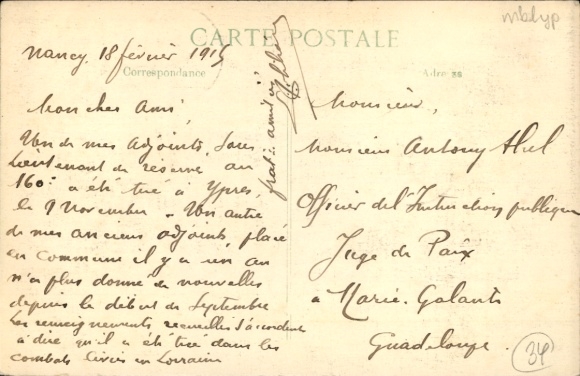 mblyp
CARTE POSTALE
Correspondance
Adresse
Nancy, 18 février 1915
Mon cher Ami,
Un de mes adjoints, sous
lieutenant de réserve au
160e a été tué à Ypres,
le 9 Novembre. Un autre
de mes anciens adjoints, placé
en commune il y a un an
n'a plus donné de nouvelles
depuis le début de Septembre
Les renseignements recueillis s'accordent
à dire qu'il a été tué dans les
combats livrés en Lorraine
Monsieur,
Monsieur Antony
Officier de l'Instruction publique
Juge de Paix
à Marie-Galante
Guadeloupe.
34